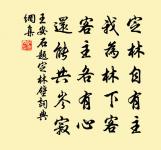 定林自有主
我為林下客
客主各有心
還能共岑寂
王安石題定林壁詞典
網集